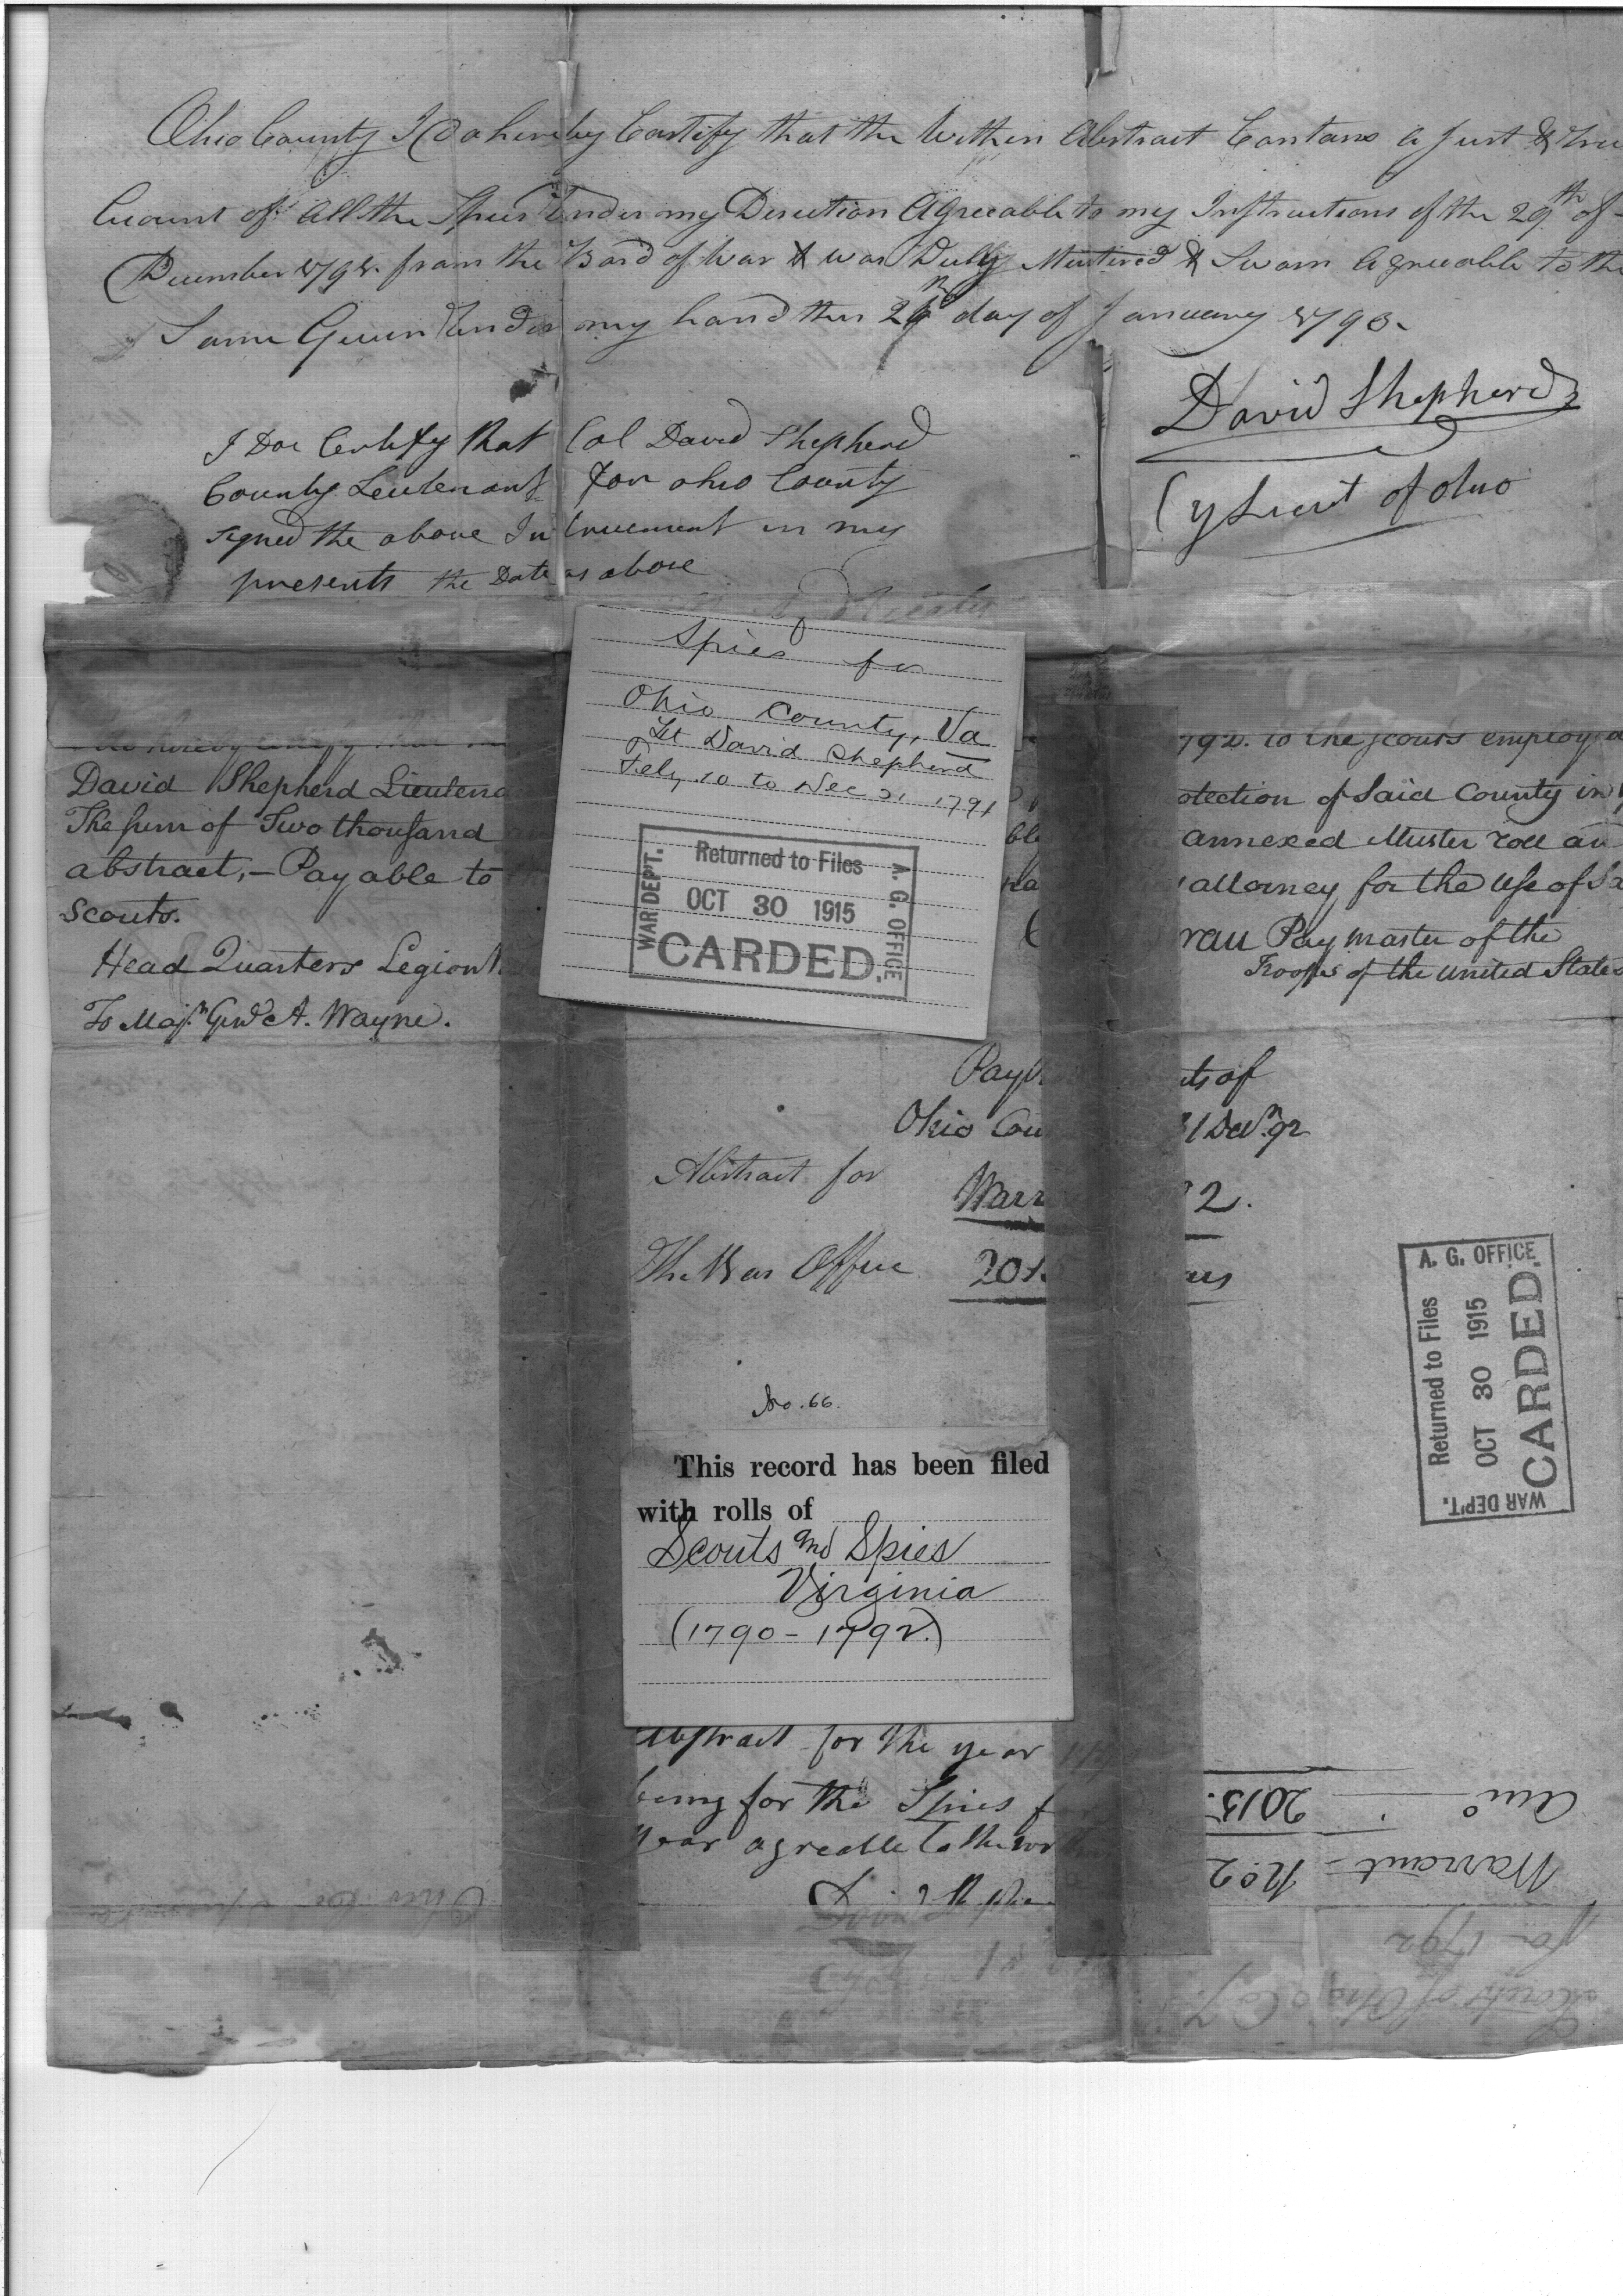 Ohio County I do hereby Certify that the Within Abstract Contans a Just & true
Account of All the Spies Under my Direction Agreeable to my Instructions of the 29th of
December 1791. from the Board of War & was Duly Mustered & Sworn Agreeable to the
Same Given Under my hand this day of January 1793.
David Shepherd
of Ohio
I Doe Certify that Col David Shepherd
County Leutenant for ohio County
signed the above Instrument in my
presents the Date as above
Spies for
Ohio County, Va
Lt David Shepherd
Feby 10 to Dec 31 1791
WAR DEP'T.
Returned to Files
OCT 30 1915
CARDED.
A. G. OFFICE
do hereby certify that
David Shepherd Lieutena
The sum of Two thousand
abstract, – Payable to
Scouts.
Head Quarters Legion
To Maj.r Gen.l A. Wayne.
792. to the scouts employed
otection of Said County in
annexed Muster roll an
attorney for the Use of Sa
Pay Master of the
Troops of the United States
Pay ts of
Ohio Cou 31 Decr. 92
Abstract for
Warr 2.
The War Office 2015 ars
No. 66.
This record has been filed
with rolls of
Scouts and Spies
Virginia
(1790 - 1792.)
A. G. OFFICE
Returned to Files
OCT 30 1915
CARDED.
WAR DEP'T.
Abstract for the year
being for the Spies f
year agreable to the
Warrant - No. 2
2015.
Scouts of Ohio Coy.
for 1792